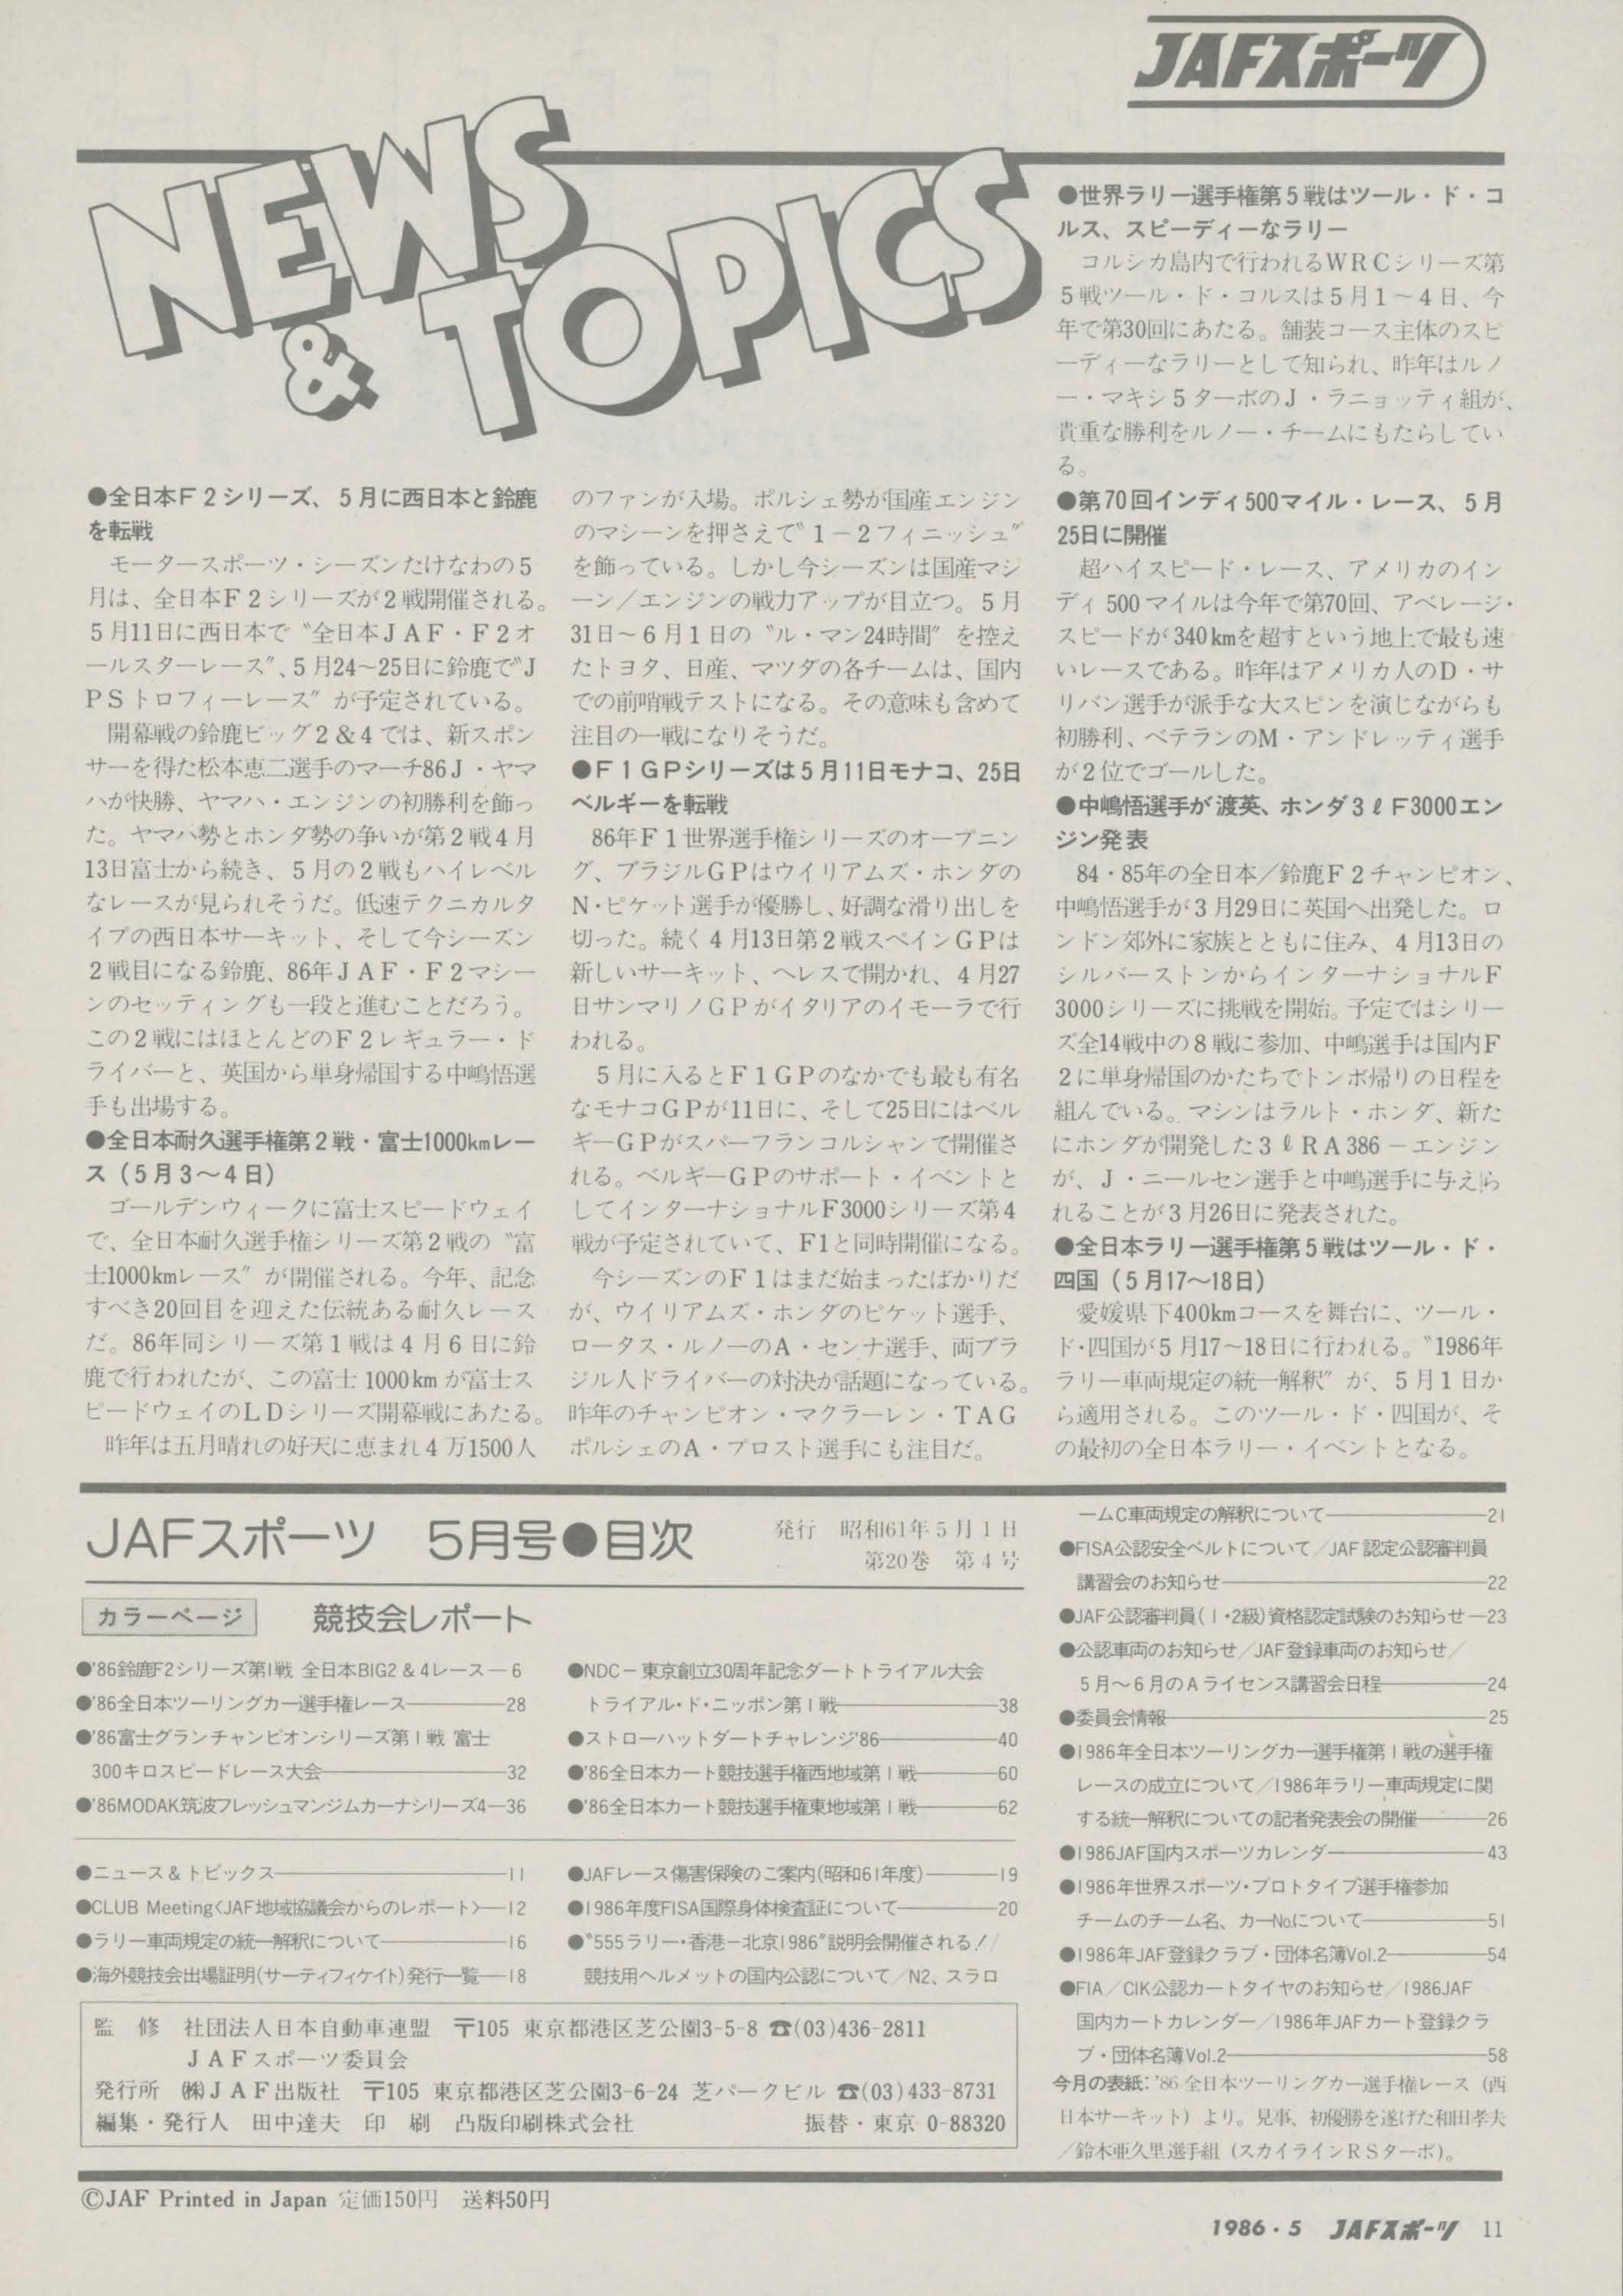 JAFスポーツ
NEWS
& TOPICS
●全日本F2シリーズ、5月に西日本と鈴鹿
を転戦
モータースポーツ・シーズンたけなわの5
月は、全日本F2シリーズが2戦開催される。
5月11日に西日本で〝全日本JAF・F2オ
ールスターレース〟、5月24～25日に鈴鹿で〝J
PSトロフィーレース〟が予定されている。
開幕戦の鈴鹿ビッグ2&4では、新スポン
サーを得た松本恵二選手のマーチ86J・ヤマ
ハが快勝、ヤマハ・エンジンの初勝利を飾っ
た。ヤマハ勢とホンダ勢の争いが第2戦4月
13日富士から続き、5月の2戦もハイレベル
なレースが見られそうだ。低速テクニカルタ
イプの西日本サーキット、そして今シーズン
2戦目になる鈴鹿、86年JAF・F2マシー
ンのセッティングも一段と進むことだろう。
この2戦にはほとんどのF2レギュラー・ド
ライバーと、英国から単身帰国する中嶋悟選
手も出場する。
●全日本耐久選手権第2戦・富士1000kmレー
ス（5月3～4日）
ゴールデンウィークに富士スピードウェイ
で、全日本耐久選手権シリーズ第2戦の〝富
士1000kmレース〟が開催される。今年、記念
すべき20回目を迎えた伝統ある耐久レース
だ。86年同シリーズ第1戦は4月6日に鈴
鹿で行われたが、この富士1000kmが富士ス
ピードウェイのLDシリーズ開幕戦にあたる。
昨年は五月晴れの好天に恵まれ4万1500人
のファンが入場。ポルシェ勢が国産エンジン
のマシーンを押さえて〝1－2フィニッシュ〟
を飾っている。しかし今シーズンは国産マシ
ーン/エンジンの戦力アップが目立つ。5月
31日～6月1日の〝ル・マン24時間〟を控え
たトヨタ、日産、マツダの各チームは、国内
での前哨戦テストになる。その意味も含めて
注目の一戦になりそうだ。
●F1GPシリーズは5月11日モナコ、25日
ベルギーを転戦
86年F1世界選手権シリーズのオープニン
グ、ブラジルGPはウイリアムズ・ホンダの
N・ピケット選手が優勝し、好調な滑り出しを
切った。続く4月13日第2戦スペインGPは
新しいサーキット、ヘレスで開かれ、4月27
日サンマリノGPがイタリアのイモーラで行
われる。
5月に入るとF1GPのなかでも最も有名
なモナコGPが11日に、そして25日にはベル
ギーGPがスパーフランコルシャンで開催さ
れる。ベルギーGPのサポート・イベントと
してインターナショナルF3000シリーズ第4
戦が予定されていて、F1と同時開催になる。
今シーズンのF1はまだ始まったばかりだ
が、ウイリアムズ・ホンダのピケット選手、
ロータス・ルノーのA・センナ選手、両ブラ
ジル人ドライバーの対決が話題になっている。
昨年のチャンピオン・マクラーレン・TAG
ポルシェのA・プロスト選手にも注目だ。
●世界ラリー選手権第5戦はツール・ド・コ
ルス、スピーディーなラリー
コルシカ島内で行われるWRCシリーズ第
5戦ツール・ド・コルスは5月1～4日、今
年で第30回にあたる。舗装コース主体のスピ
ーディーなラリーとして知られ、昨年はルノ
ー・マキシ5ターボのJ・ラニョッティ組が、
貴重な勝利をルノー・チームにもたらしてい
る。
●第70回インディ500マイル・レース、5月
25日に開催
超ハイスピード・レース、アメリカのイン
ディ500マイルは今年で第70回、アベレージ・
スピードが340kmを超すという地上で最も速
いレースである。昨年はアメリカ人のD・サ
リバン選手が派手な大スピンを演じながらも
初勝利、ベテランのM・アンドレッティ選手
が2位でゴールした。
●中嶋悟選手が渡英、ホンダ3ℓF3000エン
ジン発表
84・85年の全日本/鈴鹿F2チャンピオン、
中嶋悟選手が3月29日に英国へ出発した。ロ
ンドン郊外に家族とともに住み、4月13日の
シルバーストンからインターナショナルF
3000シリーズに挑戦を開始。予定ではシリー
ズ全14戦中の8戦に参加、中嶋選手は国内F
2に単身帰国のかたちでトンボ帰りの日程を
組んでいる。マシンはラルト・ホンダ、新た
にホンダが開発した3ℓRA386－エンジン
が、J・ニールセン選手と中嶋選手に与えら
れることが3月26日に発表された。
●全日本ラリー選手権第5戦はツール・ド・
四国（5月17～18日）
愛媛県下400kmコースを舞台に、ツール・
ド・四国が5月17～18日に行われる。〝1986年
ラリー車両規定の統一解釈〟が、5月1日か
ら適用される。このツール・ド・四国が、そ
の最初の全日本ラリー・イベントとなる。
JAFスポーツ 5月号●目次
発行 昭和61年5月1日
第20巻 第4号
カラーページ 競技会レポート
●'86鈴鹿F2シリーズ第1戦 全日本BIG2&4レース―6
●'86全日本ツーリングカー選手権レース―28
●'86富士グランチャンピオンシリーズ第1戦 富士
300キロスピードレース大会―32
●'86MODAK筑波フレッシュマンジムカーナシリーズ4―36
●NDC－東京創立30周年記念ダートトライアル大会
トライアル・ド・ニッポン第1戦―38
●ストローハットダートチャレンジ'86―40
●'86全日本カート競技選手権西地域第1戦―60
●'86全日本カート競技選手権東地域第1戦―62
●ニュース&トピックス―11
●CLUB Meeting〈JAF地域協議会からのレポート〉―12
●ラリー車両規定の統一解釈について―16
●海外競技会出場証明(サーティフィケイト)発行一覧―18
●JAFレース傷害保険のご案内(昭和61年度)―19
●1986年度FISA国際身体検査証について―20
●〝555ラリー・香港－北京1986〟説明会開催される！/
競技用ヘルメットの国内公認について/N2、スラロ
ームC車両規定の解釈について―21
●FISA公認安全ベルトについて/JAF認定公認審判員
講習会のお知らせ―22
●JAF公認審判員(1・2級)資格認定試験のお知らせ―23
●公認車両のお知らせ/JAF登録車両のお知らせ/
5月～6月のAライセンス講習会日程―24
●委員会情報―25
●1986年全日本ツーリングカー選手権第1戦の選手権
レースの成立について/1986年ラリー車両規定に関
する統一解釈についての記者発表会の開催―26
●1986JAF国内スポーツカレンダー―43
●1986年世界スポーツ・プロトタイプ選手権参加
チームのチーム名、カーNo.について―51
●1986年JAF登録クラブ・団体名簿Vol.2―54
●FIA/CIK公認カートタイヤのお知らせ/1986JAF
国内カートカレンダー/1986年JAFカート登録クラ
ブ・団体名簿Vol.2―58
今月の表紙：'86全日本ツーリングカー選手権レース（西
日本サーキット）より。見事、初優勝を遂げた和田孝夫
/鈴木亜久里選手組（スカイラインRSターボ）。
監 修 社団法人日本自動車連盟 〒105 東京都港区芝公園3-5-8 ☎(03)436-2811
JAFスポーツ委員会
発行所 ㈱JAF出版社 〒105 東京都港区芝公園3-6-24 芝パークビル ☎(03)433-8731
編集・発行人 田中達夫 印 刷 凸版印刷株式会社 振替・東京 0-88320
©JAF Printed in Japan 定価150円 送料50円
1986・5 JAFスポーツ 11